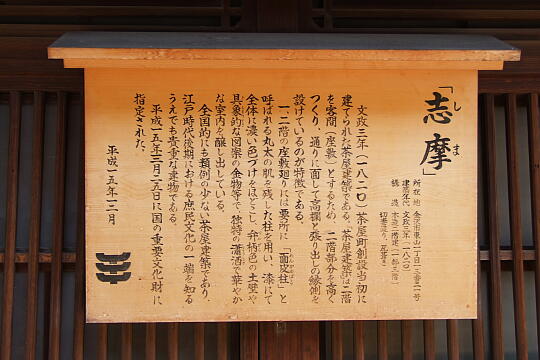 「志摩」
しま
所在地 金沢市東山一丁目一三番二一号
建築年代 文政三年(一八二〇)
構造 木造二階建(一部三階)
切妻造り、瓦葺き
文政三年(一八二〇)茶屋町創設当初に
建てられた茶屋建築である。茶屋建築は二階
を客間(座敷)とするため、二階部分を高く
つくり、通りに面して高欄と張り出しの縁側を
設けているのが特徴である。
一、二階の座敷廻りには要所に「面皮柱」と
呼ばれる丸太の肌を残した柱を用い、漆にて
全体に濃い色づけをほどこし、弁柄色の土壁や
具象的な図案の金物等で、独特の瀟洒で華やか
な室内を醸し出している。
全国的にも類例の少ない茶屋建築であり、
江戸時代後期における庶民文化の一端を知る
うえでも貴重な建物である。
平成一五年一二月二五日に国の重要文化財に
指定された。
平成一五年一二月